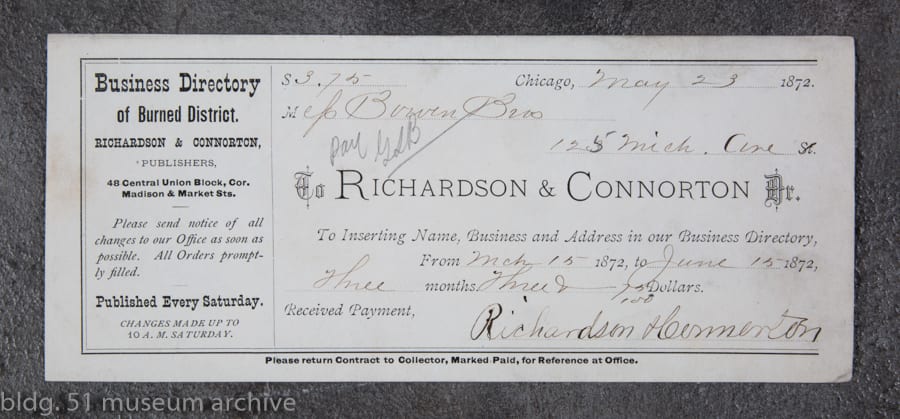 Business Directory
of Burned District.
RICHARDSON & CONNORTON,
PUBLISHERS,
48 Central Union Block, Cor.
Madison & Market Sts.
Please send notice of all
changes to our Office as soon as
possible. All Orders prompt-
ly filled.
Published Every Saturday.
CHANGES MADE UP TO
10 A. M. SATURDAY.
$ 3.75 Chicago, May 23 1872.
M Bowen Bros
pay
125 Mich. Ave St.
To RICHARDSON & CONNORTON Dr.
To Inserting Name, Business and Address in our Business Directory,
From Mch 15 1872, to June 15 1872,
Three months, Three & 75/100 Dollars.
Received Payment,
Richardson & Connorton
Please return Contract to Collector, Marked Paid, for Reference at Office.
bldg. 51 museum archive